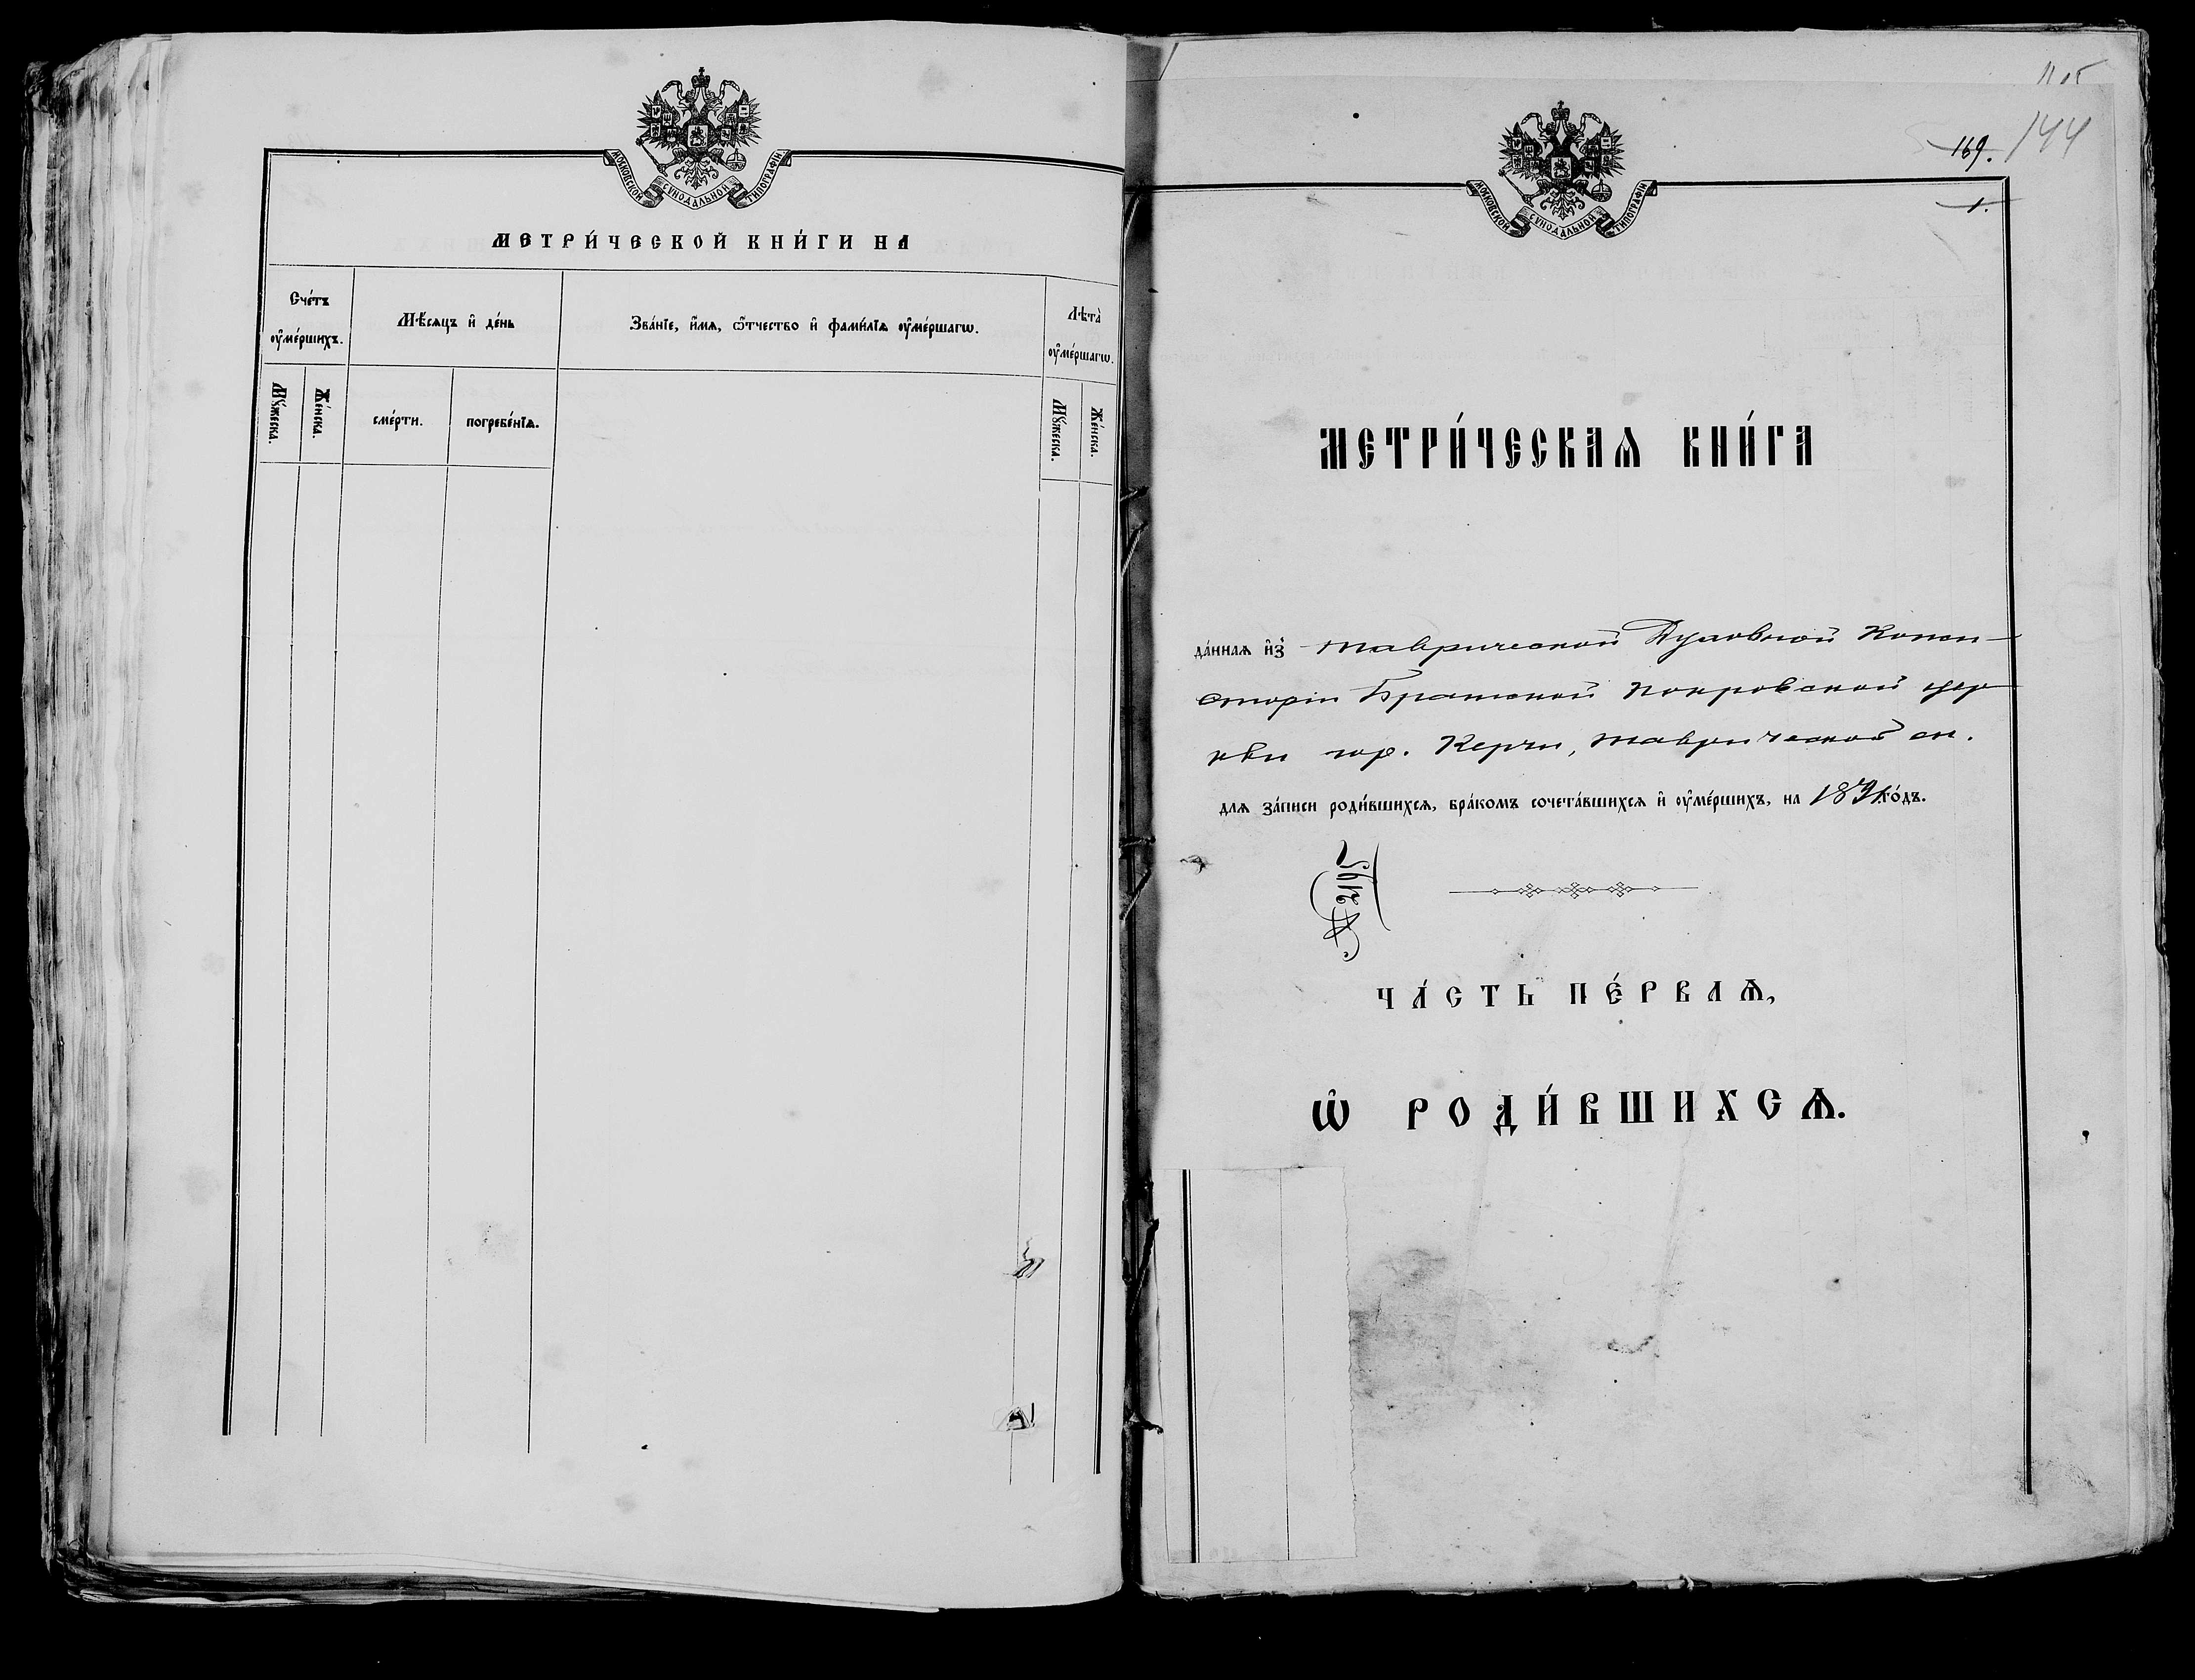 МОСКОВСКОЙ СѴНОДАЛЬНОЙ ТИПОГРАФІИ
МЕТРИ́ЧЕСКОЙ КНИ́ГИ НА
Сче́тъ ᲂу҆ме́ршихъ.
Мѣ́сяцъ и҆ де́нь
Зва́нїе, и҆́мѧ, ѻ҆́тчество и҆ фами́лїѧ ᲂу҆ме́ршагѡ.
Лѣта̀ ᲂу҆ме́ршагѡ.
Мꙋ́жеска.
Же́нска.
сме́рти.
погребе́нїѧ.
Мꙋ́жеска.
Же́нска.
144
169.
1.
МОСКОВСКОЙ СѴНОДАЛЬНОЙ ТИПОГРАФІИ
МЕТРИ́ЧЕСКАѦ КНИ́ГА
да́ннаѧ и҆з̾ Таврической Духовной Конси-
сторіи Братской Покровской цер
кви гор. Керчи, Таврической еп.
длѧ за́писи роди́вшихсѧ, бра́комъ сочета́вшихсѧ и҆ ᲂу҆ме́ршихъ, на 1891 го́дъ.
ЧА́СТЬ ПЕ́РВАѦ,
Ѽ РОДИ́ВШИХСѦ.